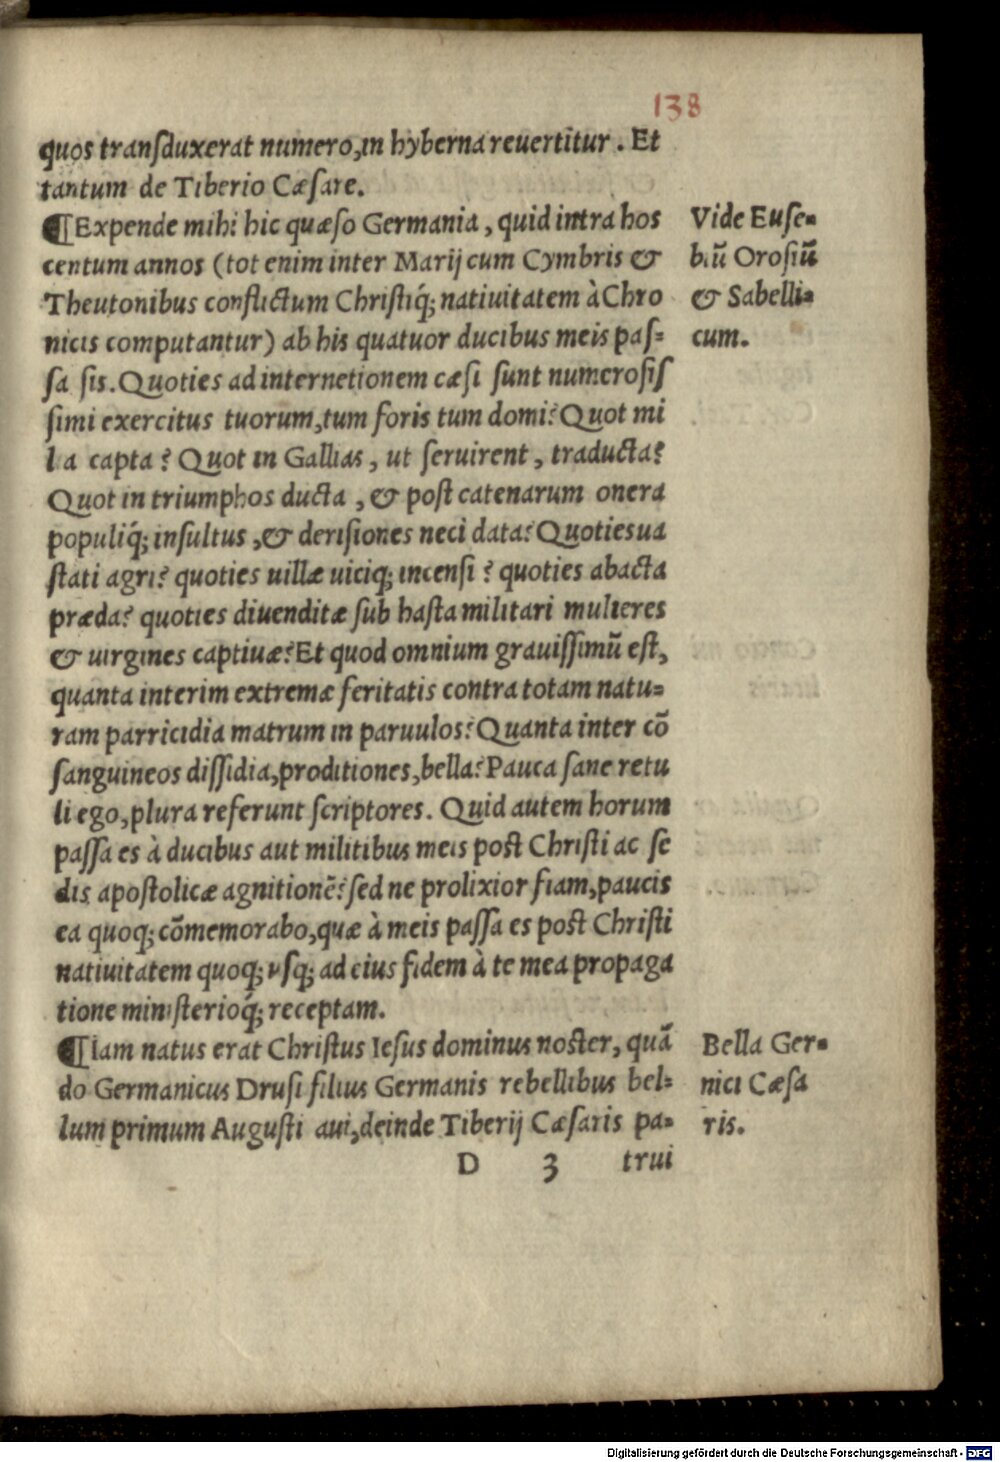 138
quos transduxerat numero, in hyberna reuertitur. Et
tantum de Tiberio Cæsare.
¶Expende mihi hic quæso Germania, quid intra hos
centum annos (tot enim inter Marij cum Cymbris &
Theutonibus conflictum Christiq́; natiuitatem à Chro
nicis computantur) ab his quatuor ducibus meis pas=
sa sis. Quoties ad internetionem cæsi sunt numerosis
simi exercitus tuorum, tum foris tum domi? Quot mi
lia capta? Quot in Gallias, ut seruirent, traducta?
Quot in triumphos ducta, & post catenarum onera
populiq́; insultus, & derisiones neci data? Quoties ua
stati agri? quoties uillæ uiciq; incensi? quoties abacta
præda? quoties diuenditæ sub hasta militari mulieres
& uirgines captiuæ? Et quod omnium grauissimū est,
quanta interim extremæ feritatis contra totam natu=
ram parricidia matrum in paruulos? Quanta inter cō
sanguineos dissidia, proditiones, bella? Pauca sane retu
li ego, plura referunt scriptores. Quid autem horum
passa es à ducibus aut militibus meis post Christi ac se
dis apostolicæ agnitionē? sed ne prolixior fiam, paucis
ea quoq; cōmemorabo, quæ à meis passa es post Christi
natiuitatem quoq; vsq; ad eius fidem à te mea propaga
tione ministerioq́; receptam.
¶Iam natus erat Christus Iesus dominus noster, quā
do Germanicus Drusi filius Germanis rebellibus bel=
lum primum Augusti aui, deinde Tiberij Cæsaris pa=
D 3 trui
Vide Euse=
biū Orosiū
& Sabelli=
cum.
Bella Ger=
nici Cæsa
ris.
Digitalisierung gefördert durch die Deutsche Forschungsgemeinschaft - DFG